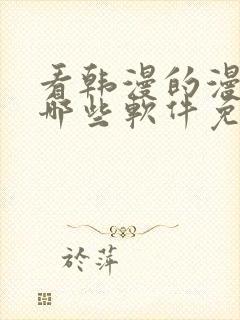 看韩漫的漫
哪些软件免
於萍